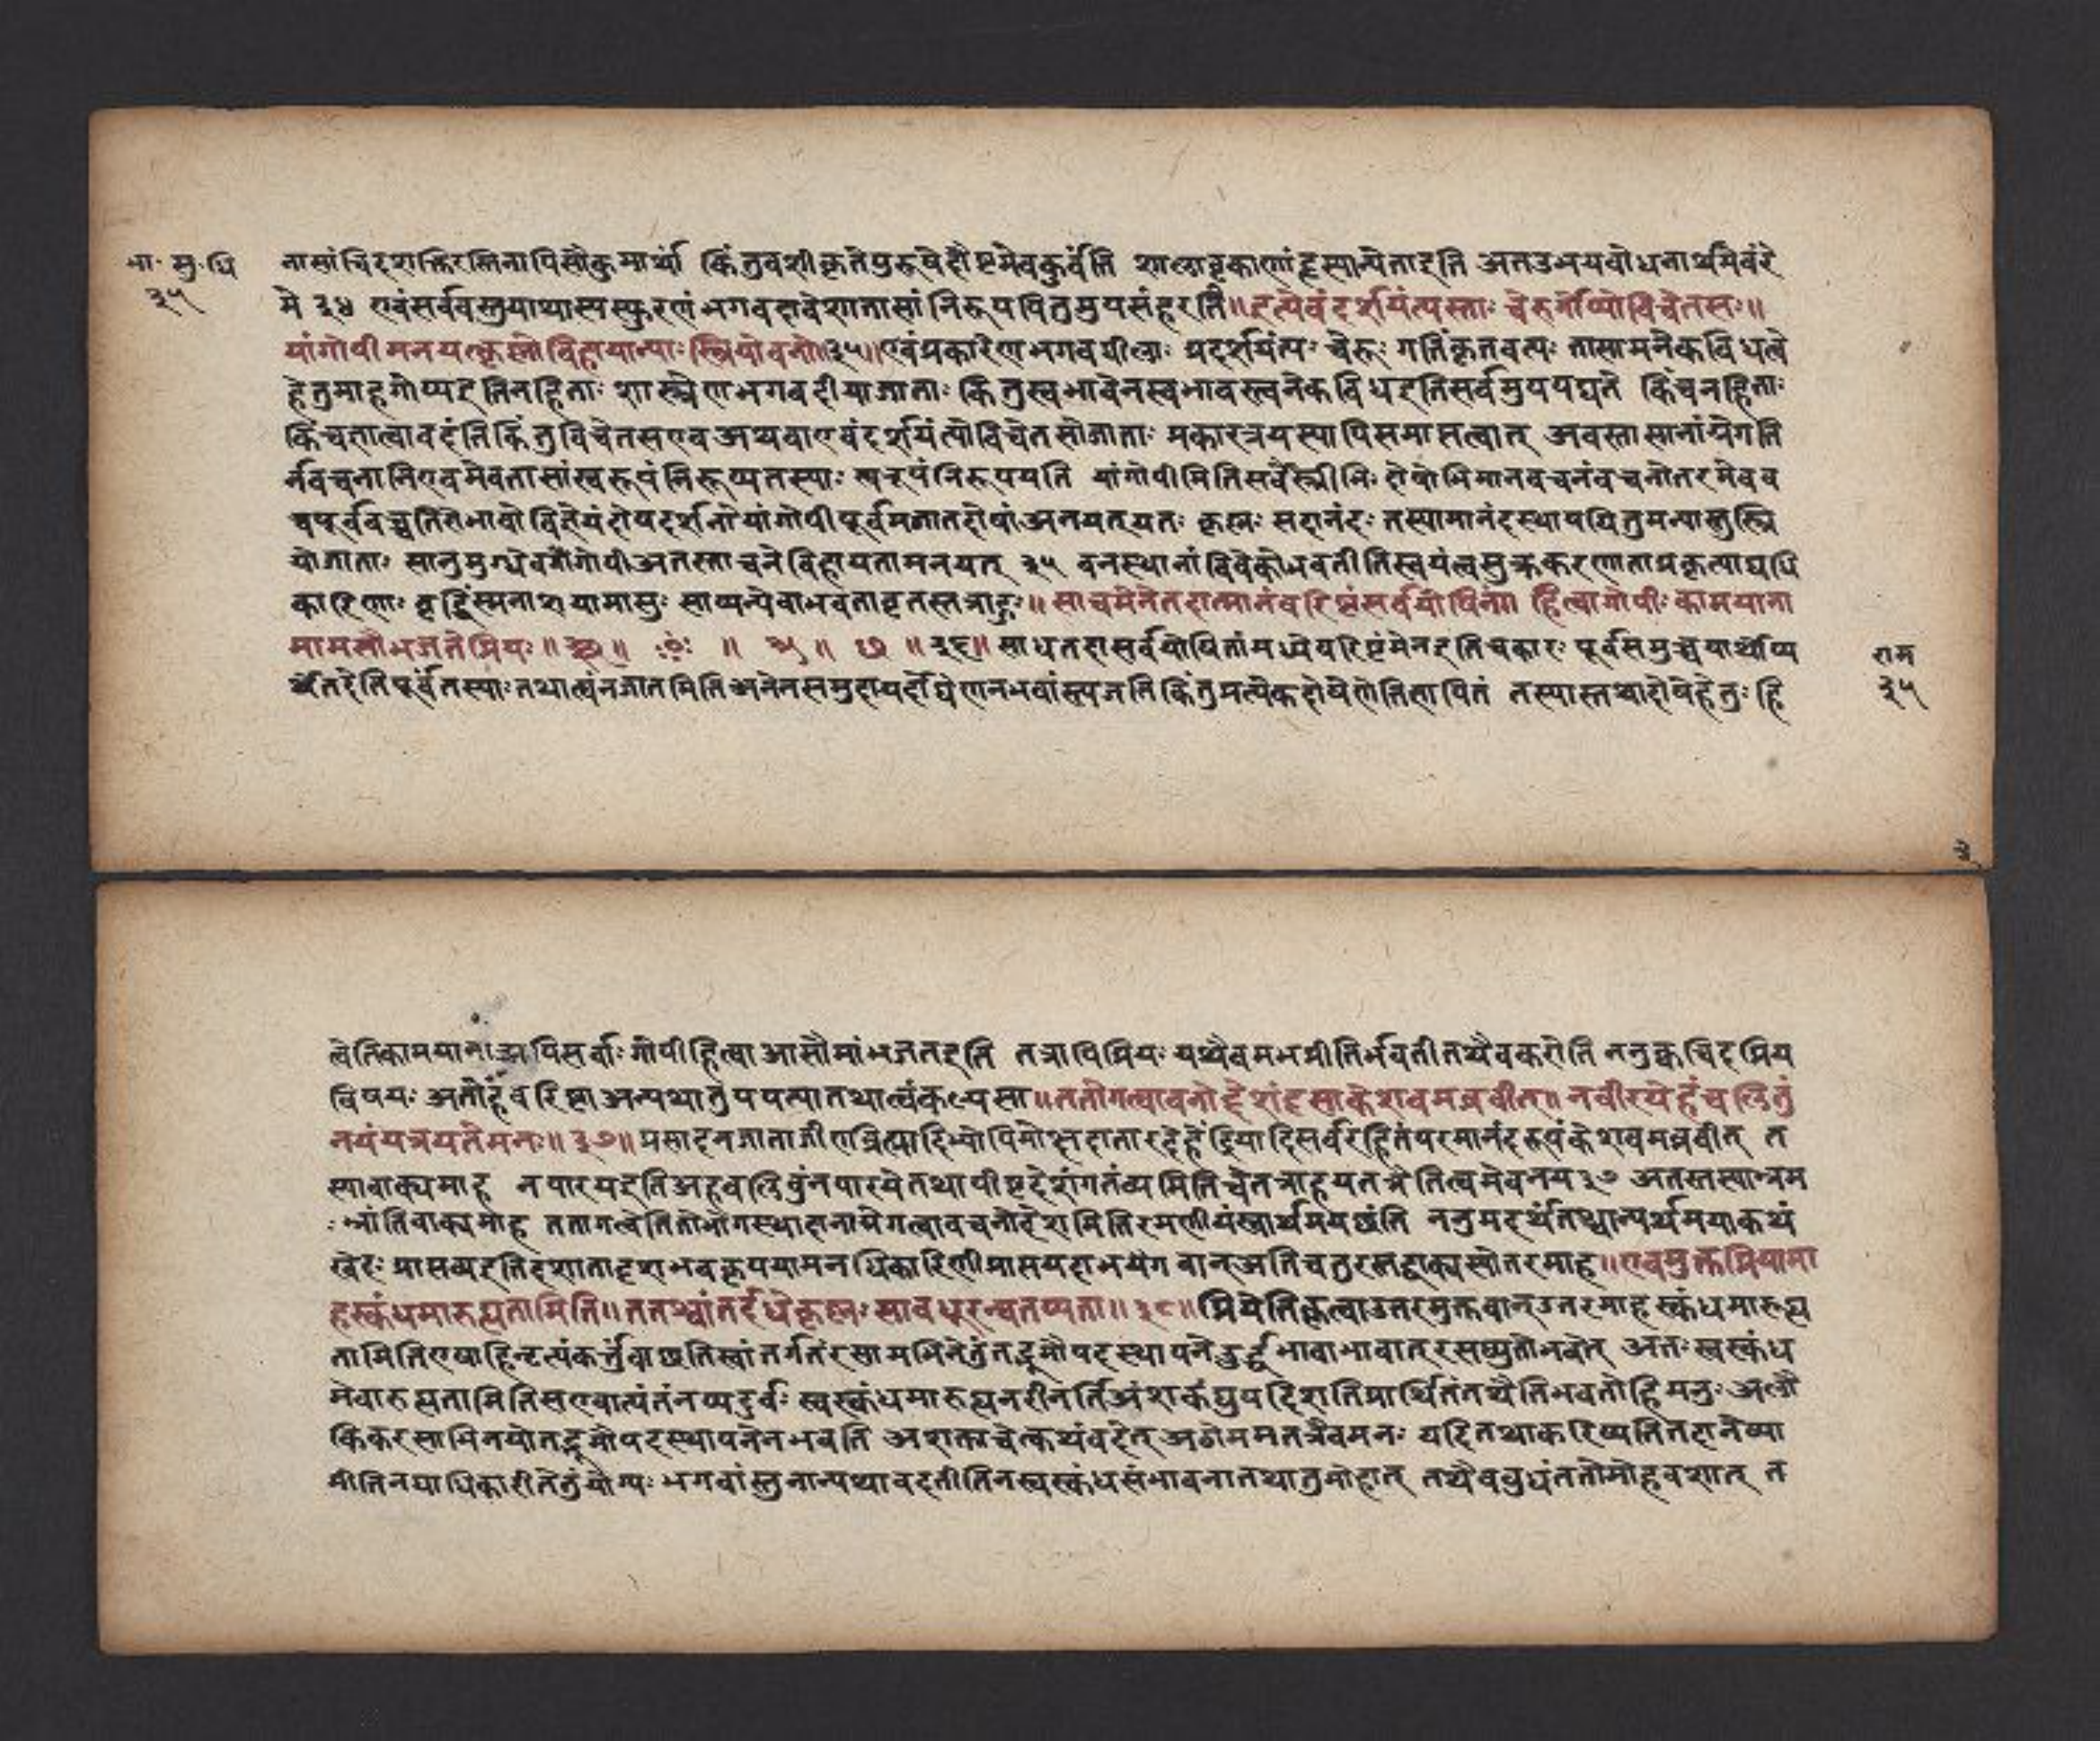 भा. सु. धि
३५
नासांचिदशक्तिरस्तिनापिसौकुमार्यां किंतुवशीकृतेपुरुषेहौष्टमेवकुर्वंति शालावृकाणांहृस्यान्येताइति अतउभयबोधनार्थमेवंरे
मे ३४ एवंसर्ववस्तुयाथास्यस्फुरणं भगवदावेशात्तासां निरूपयितुमुपसंहरति॥इत्येवंदर्शयंत्यस्ताः चेरुर्गोप्योविचेतसः॥
यांगोपीमनयत्कृष्णोविहायान्याःस्त्रियोवने॥३५॥एवंप्रकारेणभगवल्लीलाः प्रदर्शयंत्यः चेरुः गतिंकृतवत्यः तासामनेकविधत्वे
हेतुमाहगोप्यइतिनहिताः शास्त्रेणभगवदीयाजाताः किंतुस्वभावेनस्वभावस्त्वनेकविधइतिसर्वमुपपद्यते किंचनहिताः
किंचताल्वावदंति किंतुविचेतसएव अथवाएवंदर्शयंत्योविचेतसोजाताः प्रकारत्रयस्यापिसमाप्तत्वात् अवस्तासानांग्रेगति
र्नवचनानिएवमेवतासांस्वरूपंनिरूप्यतस्याः स्वरूपंनिरूपयति यांगोपीमितिसर्वैस्त्रीभिः दोषोभिमानवचनंवचनोतरमेवव
चपूर्ववच्चतिरोभावोविज्ञेयंदोषदर्शनोयांगोपीपूर्वमजातदोषांअनयत्यतः कृष्णः सदानंदः तस्यामानंदस्थापयितुमन्यास्तुस्त्रि
योजाताः सातुमुग्धेवगौगोपीअतस्ताचनेविहायतामनयत् ३५ वनस्थानांविवेकोभवतीतिस्वयंत्वसुक्रकरणाताप्रकृत्याद्यधि
कारिणाः वृद्धिंस्मनाशयामासुः साप्यन्येवाभवतावृतस्तत्राहुः॥साचमेनेतदात्मानंवरिष्ठंसर्वयोषितां हित्वागोपीः कामयाना
मामसौभजतेप्रियः॥ ॥ ॥ ॥ ॥३६॥साधतदासर्वयोषितांमध्येवरिष्टंमेनइतिचकारः पूर्वसमुच्चयार्थोप्य
र्थेतदेतिपूर्वंतस्याःतथात्वंनजातमितिअनेनसमुदायदोषेणनभवांस्त्यजतिकिंतुप्रत्येकदोषेणेतिज्ञापितं तस्यास्तथादोषेहेतुः हि
राम
३५
त्वेतिकामयानाअपिसर्वाःगोपीहित्वाआसौमांभजतइति तत्रापिप्रियः यथैवममप्रीतिर्भवतीतथैवकरोति ननुक्वचिदप्रिय
विषयः अतोहंवरिष्टाअन्यथातुपपत्यातथात्वंकल्पेसा॥ततोगत्वावनोद्देशंदृप्ताकेशवमब्रवीत॥नपारयेहंचलितुं
नयंयत्रयतेमनः॥३७॥प्रसादनजाताजीणब्रह्मादिभ्योपिमोक्षदातारद्देहेंद्रियादिसर्वरहितंपरमानंदरूपंकेशवमब्रवीत् त
स्यावाक्यमाह नपारयइतिअहंचलितुंनपारयेतथापीष्टदेशंगतंव्यमितिचेतत्राहयतत्रेतित्वमेवनय३७ अतस्तस्याभ्रम
भ्रांतिवाक्यमाह ततागत्वेतितोभोगस्थाहानामेगत्वावचनोद्देशमितिरमणीयंस्वार्थमयछंति ननुमदर्थंतथ्यान्यर्थमयाकथं
खेदः प्रासव्यइतिदृशातादृशभवकृपयामनधिकारिणीप्रासयदाभयेगवान्अतिचतुरस्तद्वाक्यस्योतरमाह॥एवमुक्तप्रियामा
हस्कंधमारुह्यतामिति॥ततश्चांतर्दधेकृष्णः सावधूरन्वतप्यता॥३८॥प्रियेतिकृत्वाउतरमुक्तवान्उतरमाहस्कंधमारुह्य
तामितिएषाहिनृत्यंकर्त्तुंवाछतिस्वांतर्गतंरसामभिनेतुंतद्भूमौपदस्थापनेदुर्द्धूभावाभावात्रसच्युतोभवेत् अतःस्वस्कंध
मेवारुह्यतामितिसएवात्यंतंनव्यदुर्वः स्वस्कंधमारुह्यनरीनर्तिअंशकंप्रुपदिशतिप्रार्थितंतथैतिभवतोहिमनुः अलौ
किकरसाभिनयोतद्भूमोपदस्थापनेनभवति अशक्ताचेत्कथंवदेत्अतोममतत्रैवमनः यदितथाकरिष्यतितदानेष्या
मीतिनयाधिकारीतेतुंयोग्यः भगवांस्तुनान्यथावदतीतिनस्वस्कंधसंभावनातथातुमोहात् तथैवबुधंततोमोहवशात् त